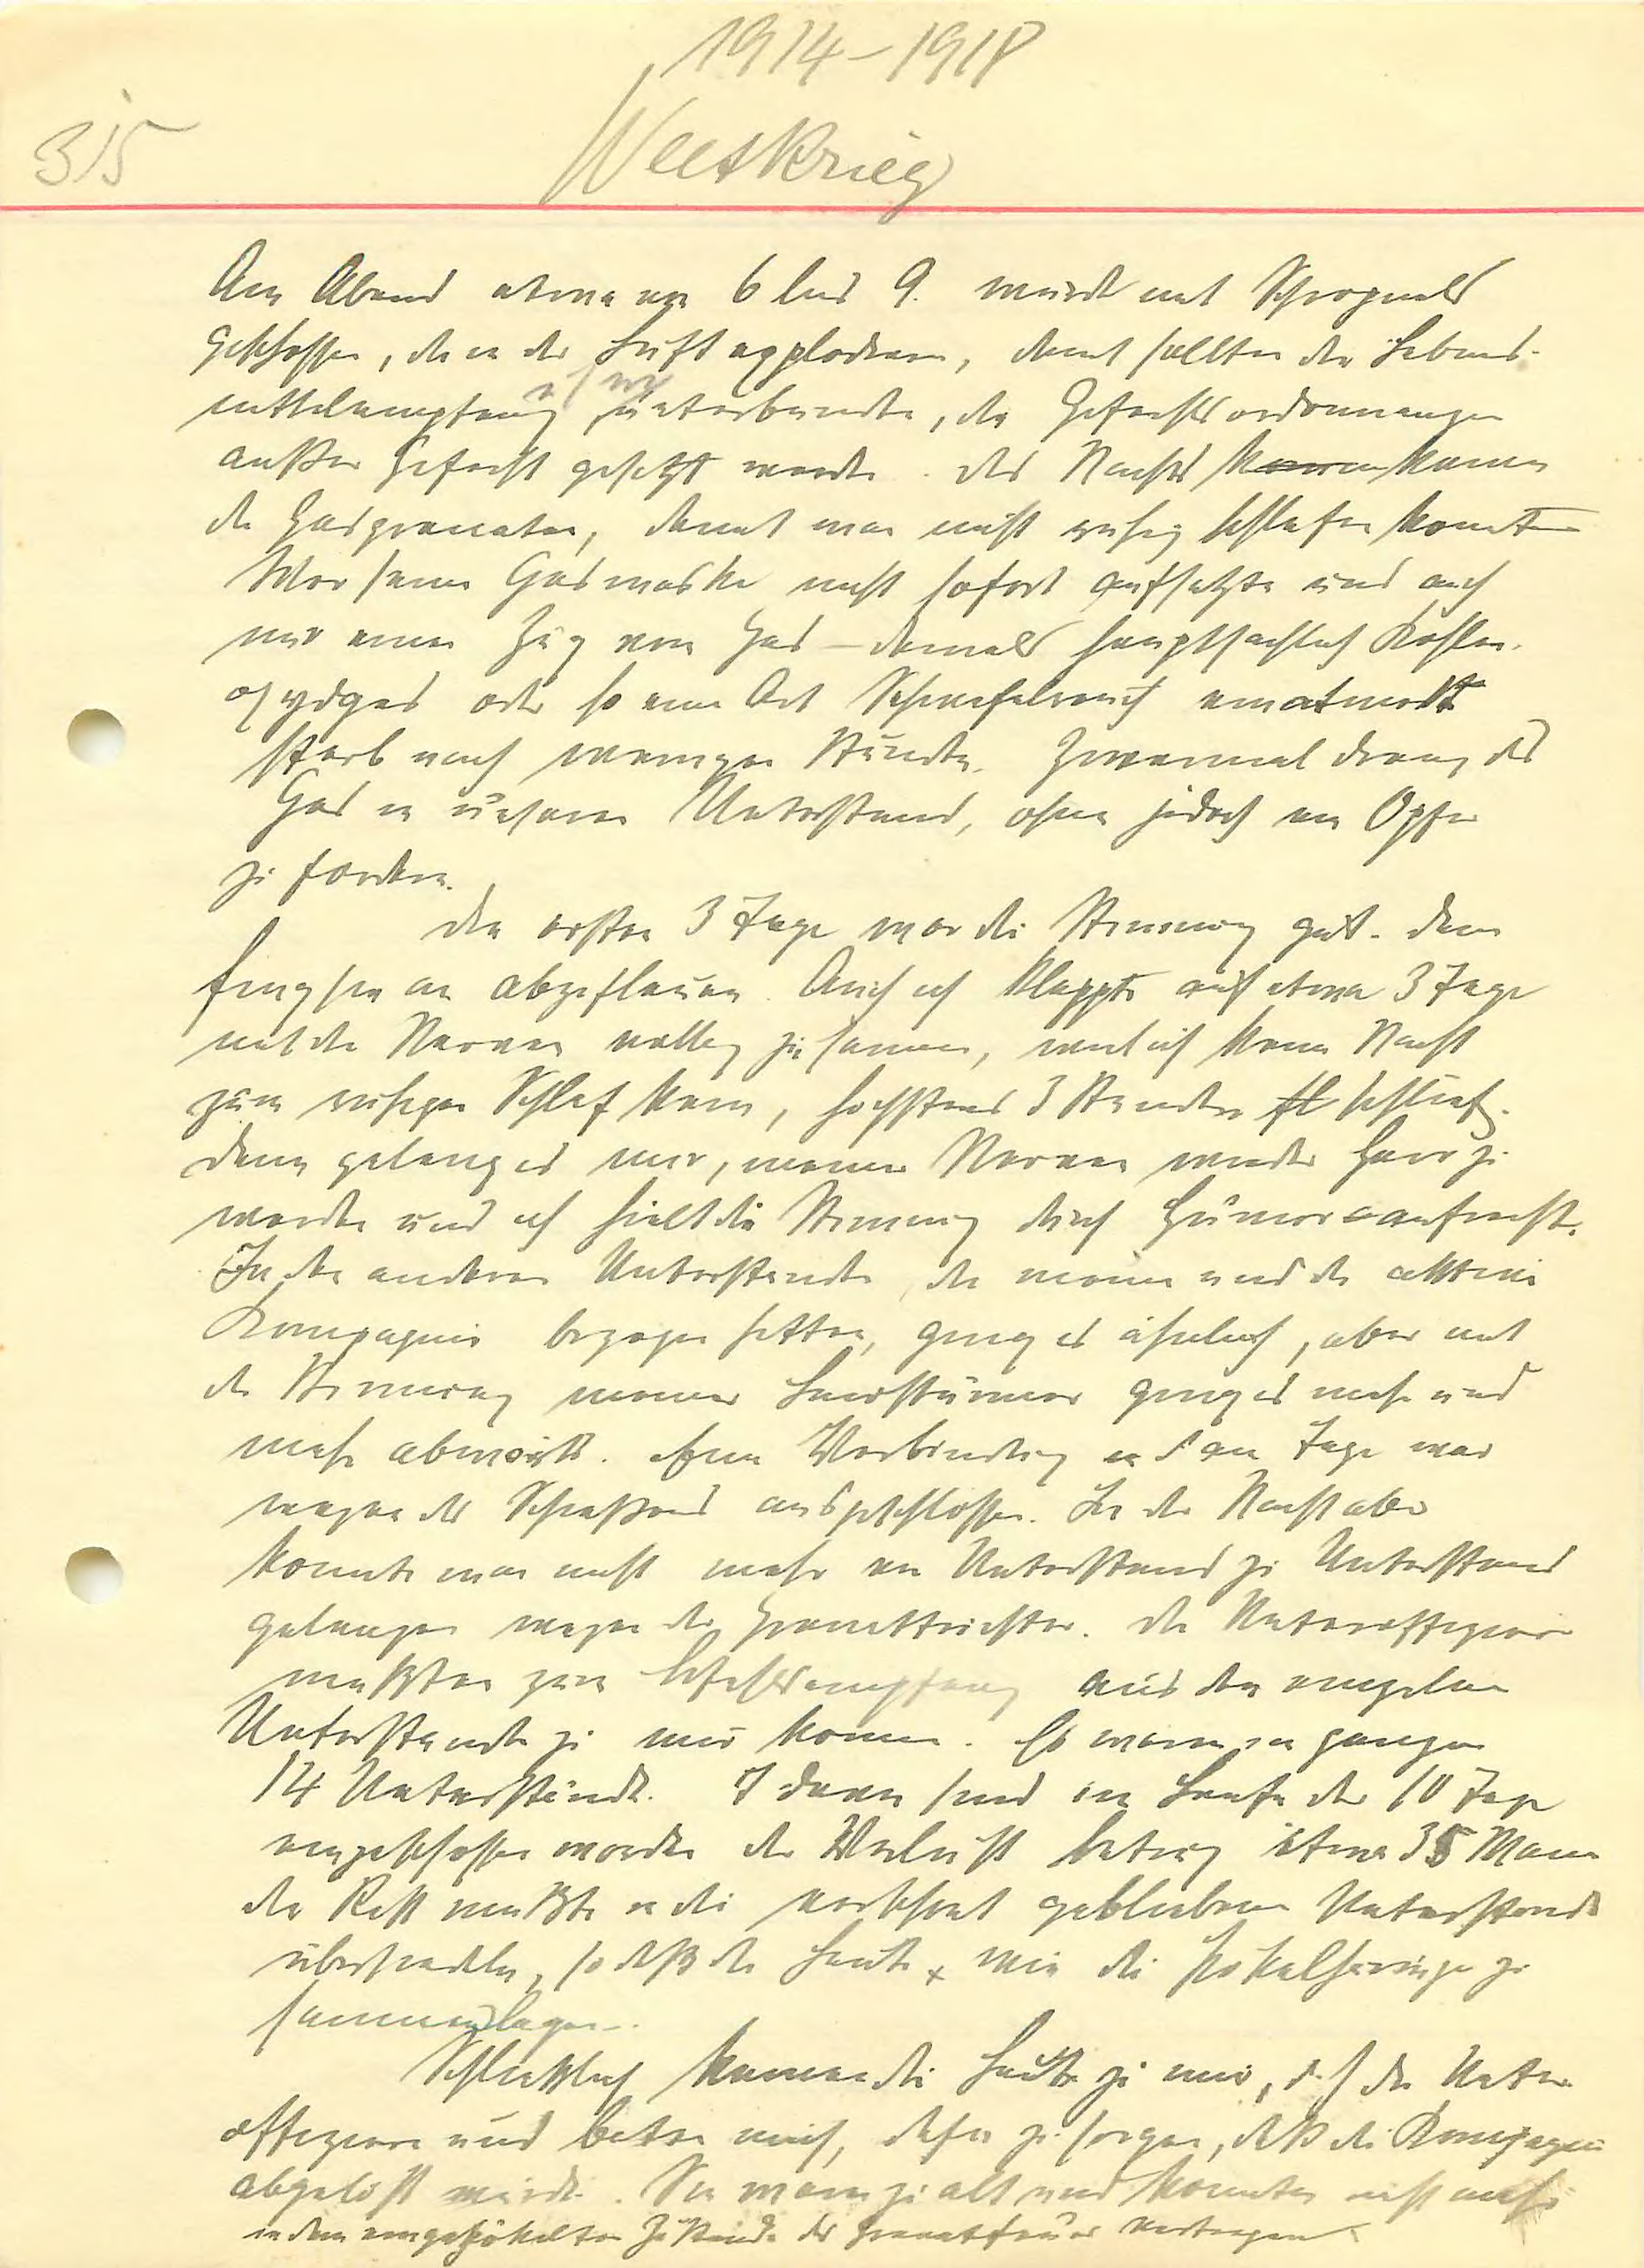 1914–1918
315
Weltkrieg
Am Abend etwa von 6 bis 9. wurde mit Schrapnells
geschossen, die in der Luft explodieren, damit sollten der Lebens-
mittelempfang usw unterbunden, die Gefechtsordonnanzen
außer Gefecht gesetzt werden. Des Nachts kamen
die Gasgranaten, damit man nicht ruhig schlafen konnte
Wer seine Gasmaske nicht sofort aufsetzte und auch
nur einen Zug von Gas – damals hauptsächlich Kohlen-
oxydgas oder so eine Art Schwefelrauch einatmete
starb nach wenigen Stunden. Zweimal drang das
Gas in unseren Unterstand, ohne jedoch ein Opfer
zu fordern.
Die ersten 3 Tage war die Stimmung gut. Dann
fing sie an abzuflauen. Auch ich klappte auf etwa 3 Tage
mit den Nerven völlig zusammen, weil ich keine Nacht
zum ruhigen Schlaf kam, höchstens 3 Stunden schlief.
Dann gelang es mir, meiner Nerven wieder Herr zu
werden und ich hielt die Stimmung durch Humor aufrecht.
In den anderen Unterständen, die meine und die aktive
Kompagnie bezogen hatten, ging es ähnlich, aber mit
der Stimmung meiner Landstürmer ging es mehr und
mehr abwärts. Eine Verbindung am Tage war
wegen des Schießens ausgeschlossen. In der Nacht aber
konnte man nicht mehr von Unterstand zu Unterstand
gelangen wegen der Granattrichter. Die Unteroffiziere
mußten zum Befehlsempfang aus den einzelnen
Unterständen zu mir kommen. Es waren im ganzen
14 Unterstände. 7 davon sind im Laufe der 10 Tage
eingeschossen worden der Verlust betrug etwa 35 Mann
der Rest mußte in die verschont gebliebenen Unterstände
übersiedeln, so daß die Leute wie die Pökelheringe zu
sammenlagen.
Schließlich kamen die Leute zu mir, d.h. die Unter-
offiziere und baten mich, dafür zu sorgen, daß die Kompagnie
abgelöst würde. Sie waren zu alt und konnten nicht mehr
in dem eingepökelten Zustande das Granatfeuer vertragen